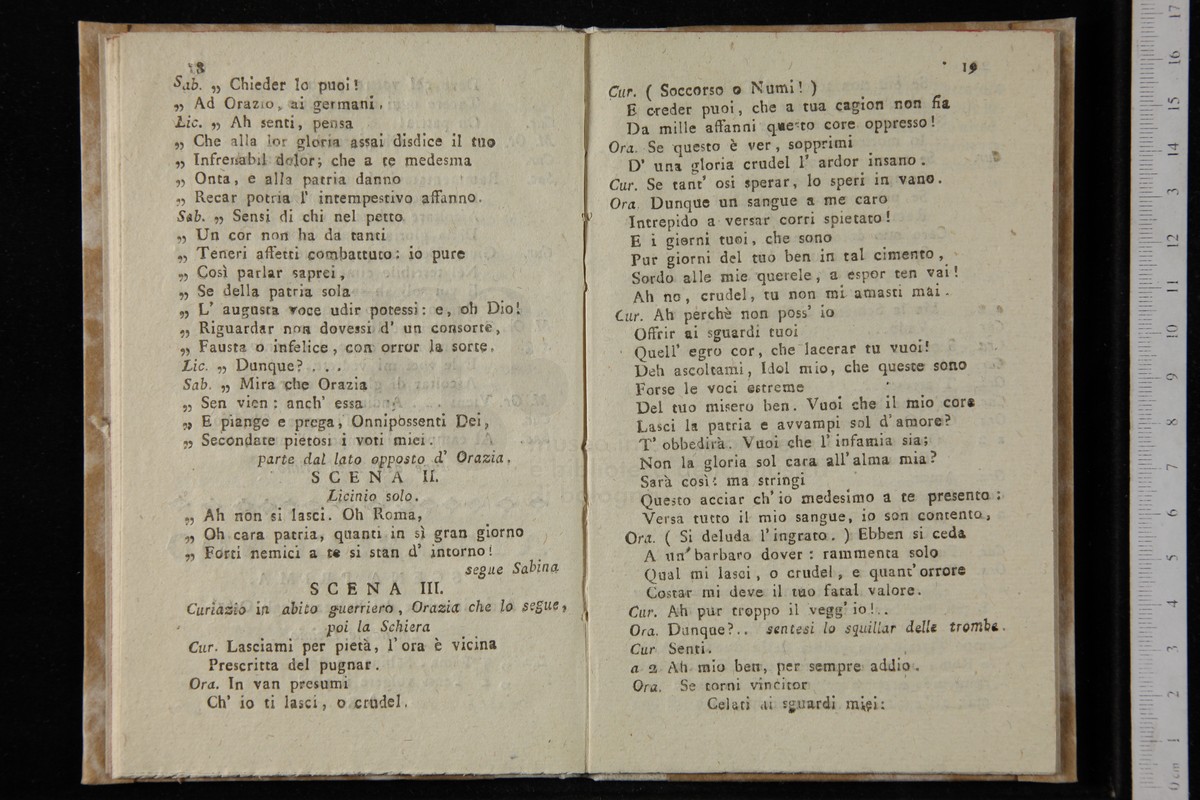 18
Sab. „ Chieder lo puoi!
„ Ad Orazio, ai germani.
Lic. „ Ah senti, pensa
„ Che alla lor gloria assai disdice il tuo
„ Infrenabil dolor; che a te medesma
„ Onta, e alla patria danno
„ Recar potria l' intempestivo affanno.
Sab. „ Sensi di chi nel petto
„ Un cor non ha da tanti
„ Teneri affetti combattuto: io pure
„ Così parlar saprei,
„ Se della patria sola
„ L' augusta voce udir potessi: e, oh Dio!
„ Riguardar non dovessi d' un consorte,
„ Fausta o infelice, con orror la sorte.
Lic. „ Dunque? . . .
Sab. „ Mira che Orazia
„ Sen vien: anch' essa
„ E piange e prega, Onnipossenti Dei,
„ Secondate pietosi i voti miei.
parte dal lato opposto d' Orazia.
SCENA II.
Licinio solo.
„ Ah non si lasci. Oh Roma,
„ Oh cara patria, quanti in sì gran giorno
„ Forti nemici a te si stan d' intorno!
segue Sabina
SCENA III.
Curiazio in abito guerriero, Orazia che lo segue,
poi la Schiera
Cur. Lasciami per pietà, l' ora è vicina
Prescritta del pugnar.
Ora. In van presumi
Ch' io ti lasci, o crudel.
19
Cur. ( Soccorso o Numi! )
E creder puoi, che a tua cagion non fia
Da mille affanni questo core oppresso!
Ora. Se questo è ver, sopprimi
D' una gloria crudel l' ardor insano.
Cur. Se tant' osi sperar, lo speri in vano.
Ora. Dunque un sangue a me caro
Intrepido a versar corri spietato!
E i giorni tuoi, che sono
Pur giorni del tuo ben in tal cimento,
Sordo alle mie querele, a espor ten vai!
Ah no, crudel, tu non mi amasti mai.
Cur. Ah perchè non poss' io
Offrir ai sguardi tuoi
Quell' egro cor, che lacerar tu vuoi!
Deh ascoltami, Idol mio, che queste sono
Forse le voci estreme
Del tuo misero ben. Vuoi che il mio core
Lasci la patria e avvampi sol d' amore?
T' obbedirà. Vuoi che l' infamia sia;
Non la gloria sol cara all' alma mia?
Sarà così: ma stringi
Questo acciar ch' io medesimo a te presento:
Versa tutto il mio sangue, io son contento,
Ora. ( Si deluda l' ingrato. ) Ebben si ceda
A un' barbaro dover: rammenta solo
Qual mi lasci, o crudel, e quant' orrore
Costar mi deve il tuo fatal valore.
Cur. Ah pur troppo il vegg' io!..
Ora. Dunque?.. sentesi lo squillar delle trombe.
Cur Senti.
a 2 Ah mio ben, per sempre addio.
Ora. Se torni vincitor
Celati ai sguardi miei: